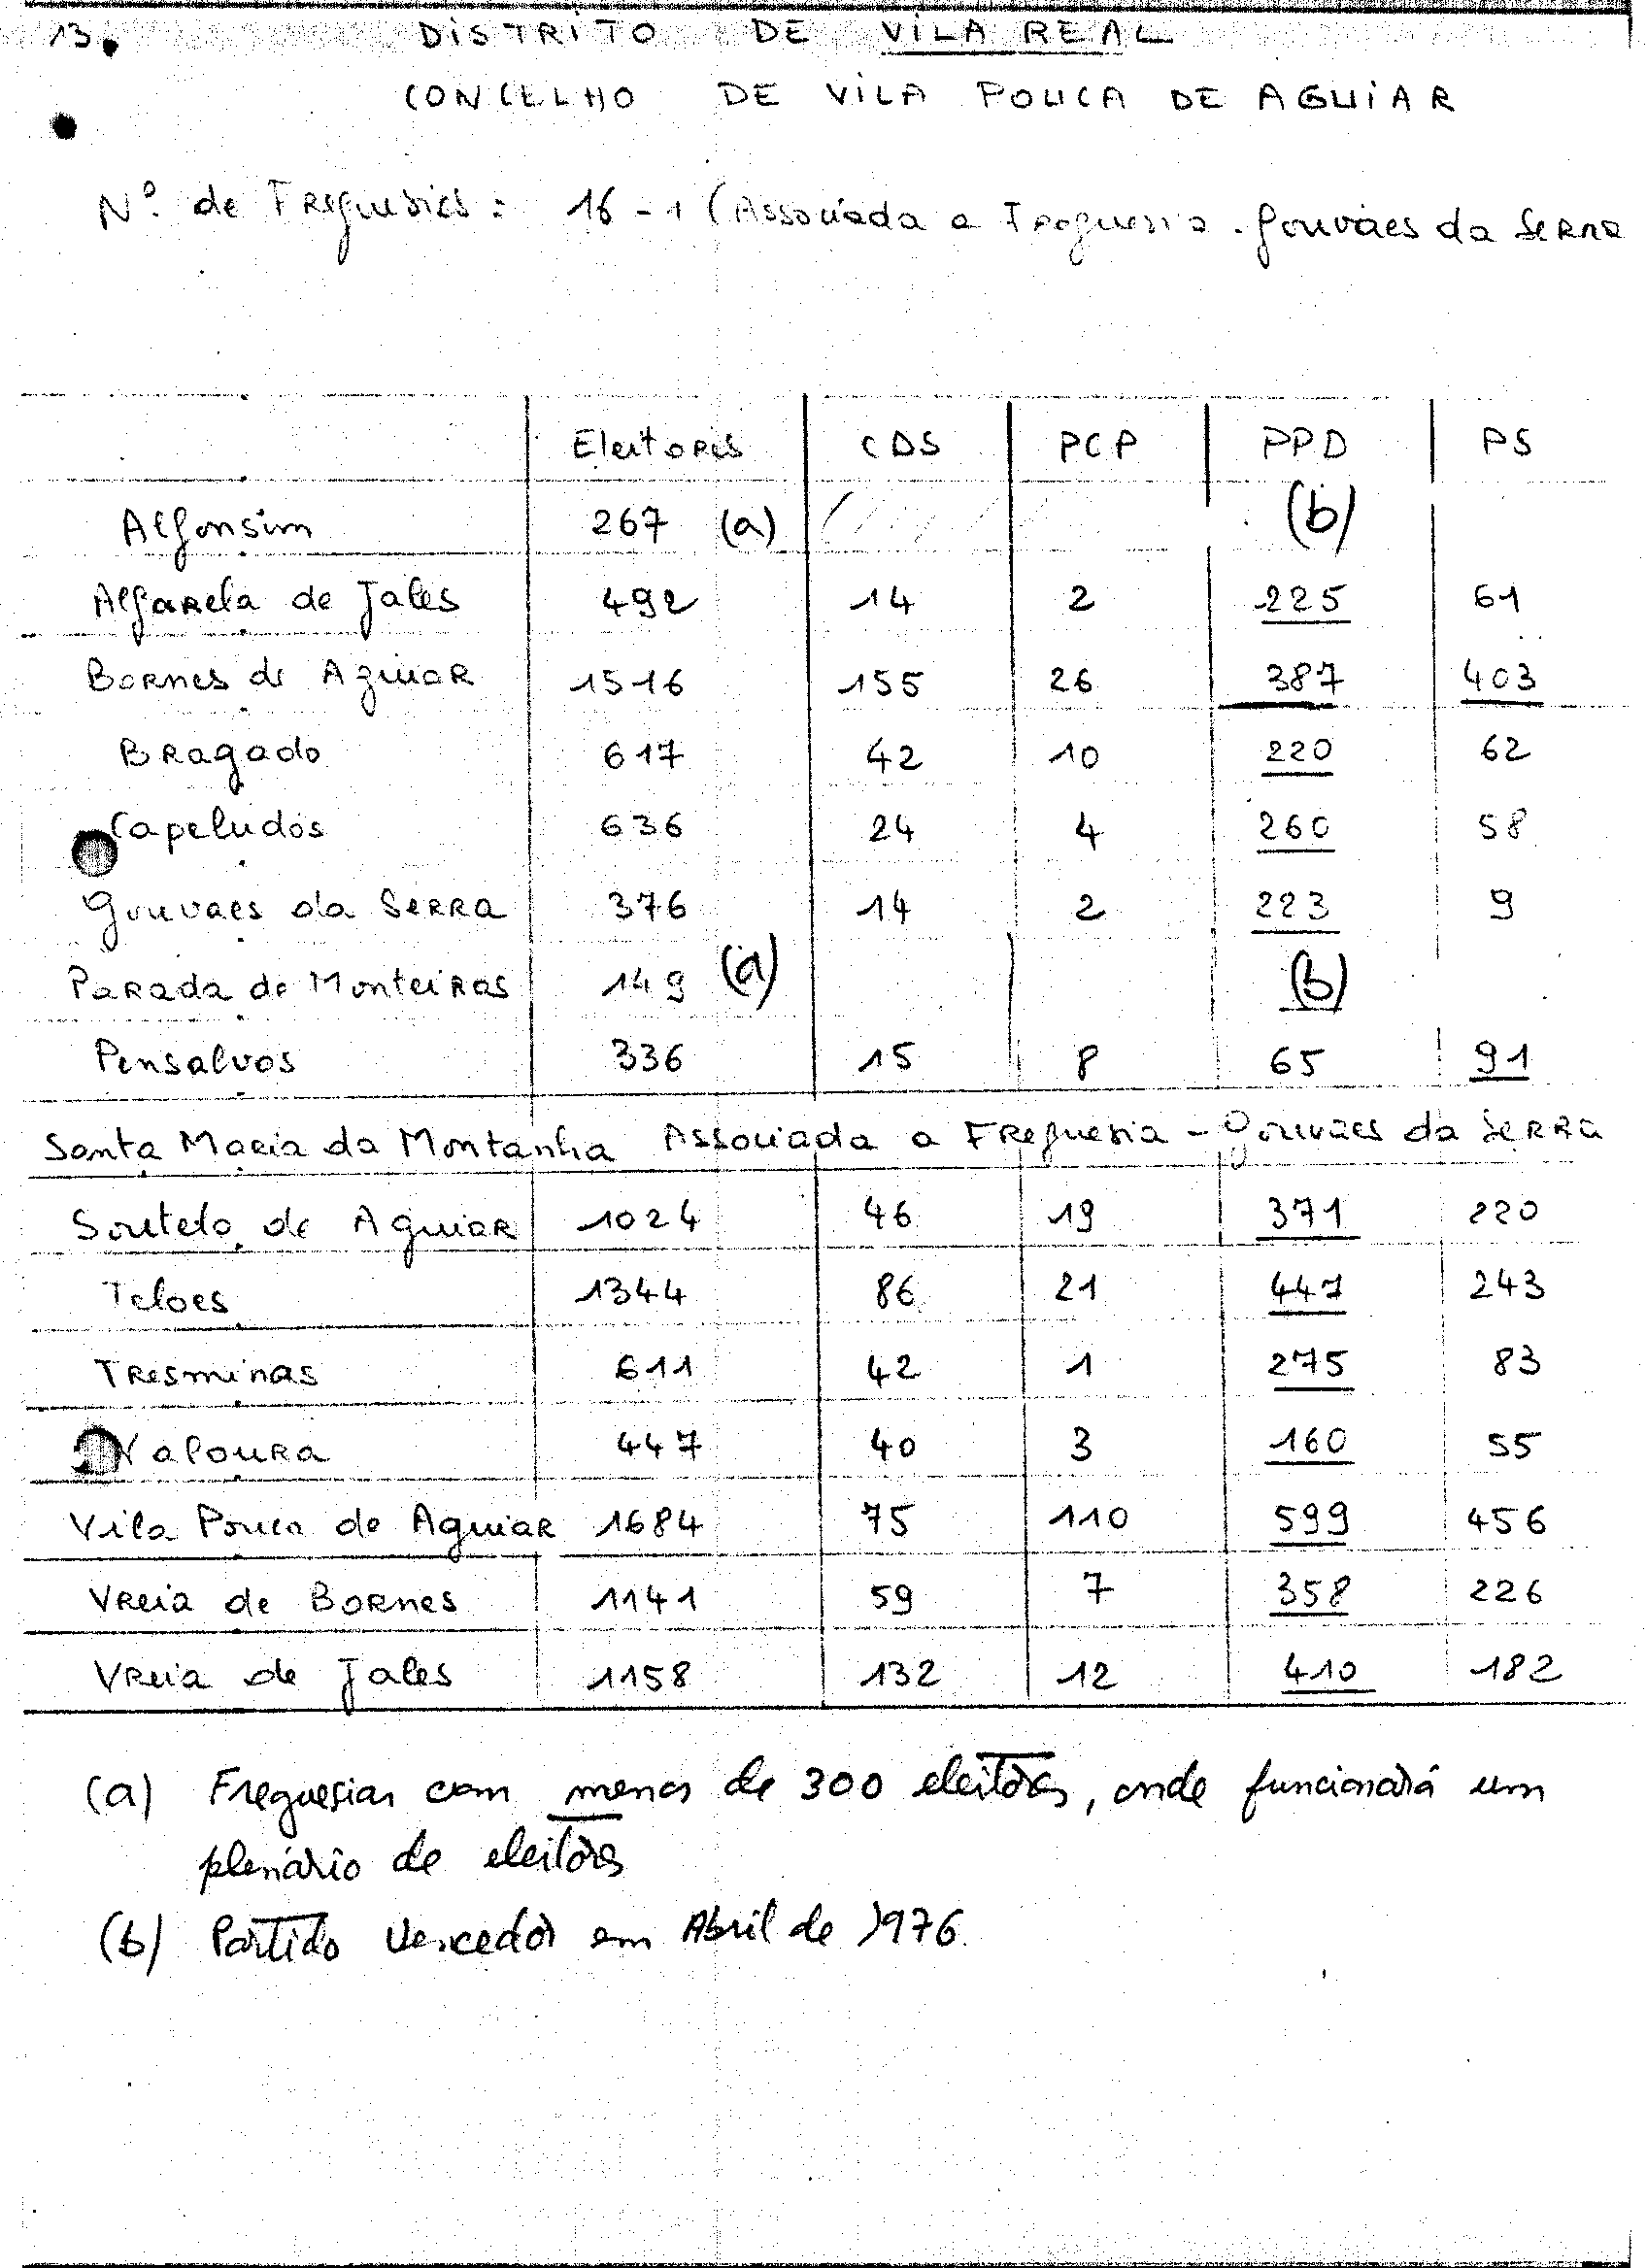 13.
DISTRITO DE VILA REAL
CONCELHO DE VILA POUCA DE AGUIAR
Nº. de Freguesias: 16-1 (Associada a Freguesia. Gouvães da Serra
Eleitores CDS PCP PPD PS
Alfonsim 267 (a) (b)
Alfarela de Jales 492 14 2 225 61
Bornes de Aguiar 1516 155 26 387 403
Bragado 617 42 10 220 62
Capeludos 636 24 4 260 58
Gouvaes da Serra 376 14 2 223 9
Parada de Monteiras 149 (a) (b)
Pensalvos 336 15 8 65 91
Santa Maria da Montanha Associada a Freguesia - Gouvaes da Serra
Soutelo de Aguiar 1024 46 19 371 220
Teloes 1344 86 21 447 243
Tresminas 611 42 1 275 83
Valoura 447 40 3 160 55
Vila Pouca de Aguiar 1684 75 110 599 456
Vreia de Bornes 1141 59 7 358 226
Vreia de Jales 1158 132 12 410 182
(a) Freguesias com menos de 300 eleitores, onde funcionará um
plenário de eleitores
(b) Partido Vencedor em Abril de 1976.